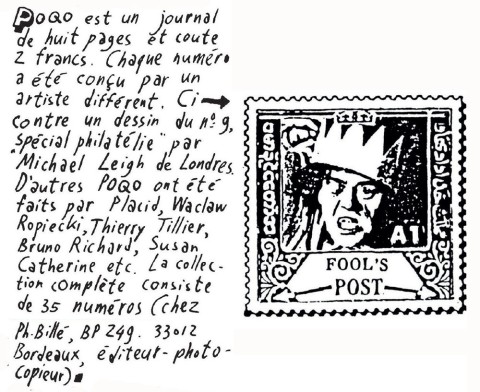 POQO est un journal
de huit pages et coute
2 francs. Chaque numéro
a été conçu par un
artiste différent. Ci
contre un dessin du nº 9,
"spécial philatélie" par
Michael Leigh de Londres.
D'autres POQO ont été
faits par Placid, Waclaw
Ropiecki, Thierry Tillier,
Bruno Richard, Susan
Catherine etc. La collec-
tion complète consiste
de 35 numéros (chez
Ph. Billé, BP 249. 33012
Bordeaux, éditeur-photo-
copieur).
A1
FOOL'S
POST